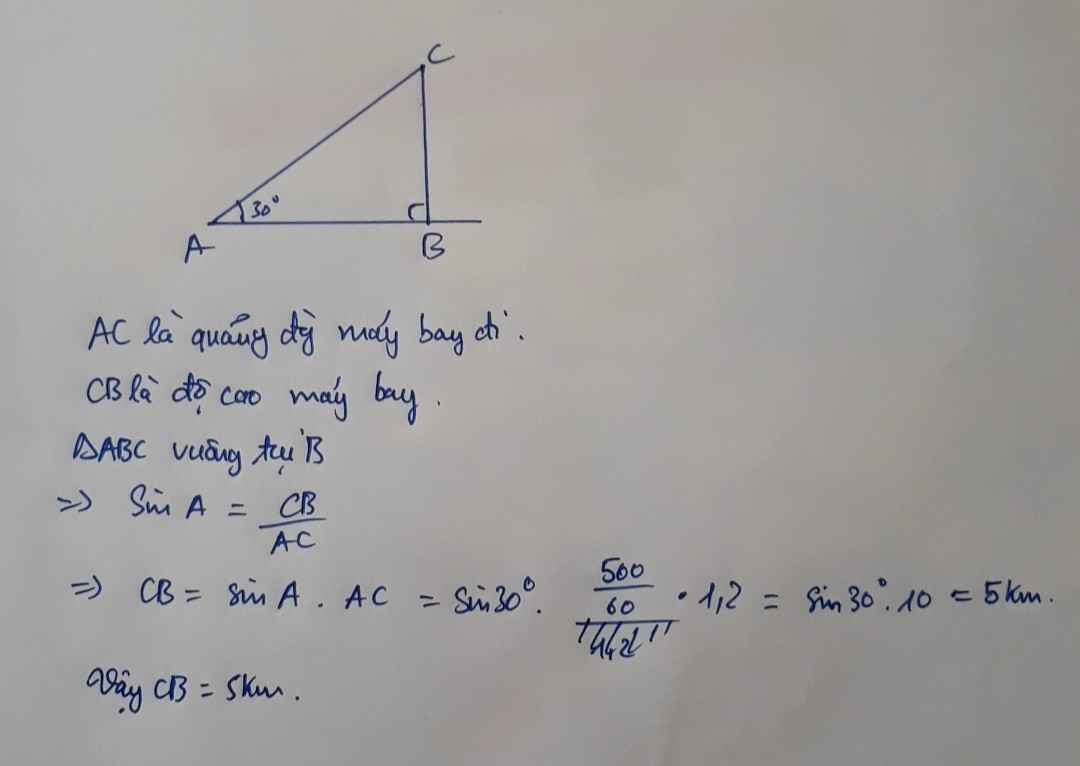 C
30°
A
B
AC là quãng đg̀ máy bay đi.
CB là độ cao máy bay.
ΔABC vuông tại B
=> Sin A = CB / AC
=> CB = sin A . AC = Sin 30°. 500/60 . 1,2 = sin 30°. 10 = 5 km.
Vậy CB = 5km.